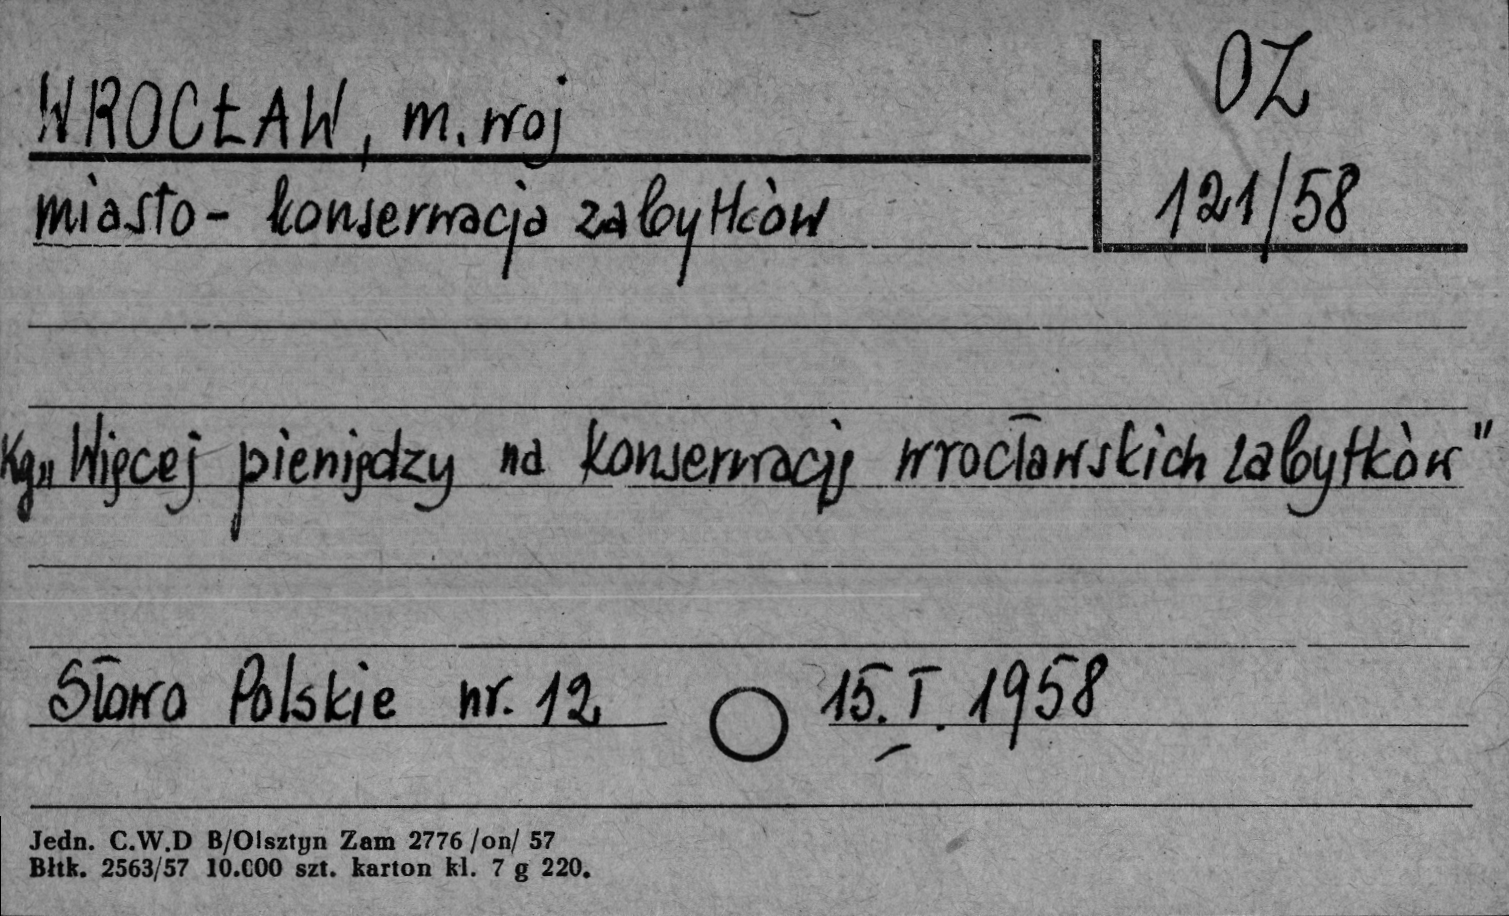 WROCŁAW, m. woj
OZ
121/58
miasto - konserwacja zabytków
Kg „Więcej pieniędzy na konserwację wrocławskich zabytków"
Słowo Polskie nr. 12 15.I.1958
Jedn. C.W.D B/Olsztyn Zam 2776 /on/ 57
Błtk. 2563/57 10.000 szt. karton kl. 7 g 220.